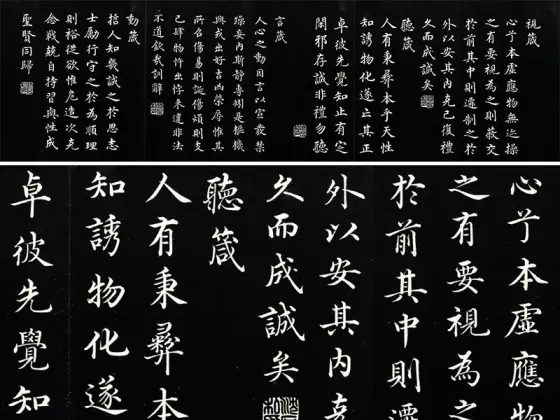 視箴
心兮本虛應物無迹操
之有要視為之則蔽交
於前其中則遷制之於
外以安其內克己復禮
久而成誠矣
聽箴
人有秉彝本乎天性
知誘物化遂亡其正
卓彼先覺知止有定
閑邪存誠非禮勿聽
言箴
人心之動因言以宣發禁
躁妄內斯靜專矧是樞機
興戎出好吉凶榮辱惟其
所召傷易則誕傷煩則支
己肆物忤出悖來違非法
不道欽哉訓辭
動箴
哲人知幾誠之於思志
士勵行守之於為順理
則裕從欲惟危造次克
念戰兢自持習與性成
聖賢同歸
心兮本虛應物
之有要視為之
於前其中則遷
外以安其內克
久而成誠矣
聽箴
人有秉彝本
知誘物化遂
卓彼先覺知